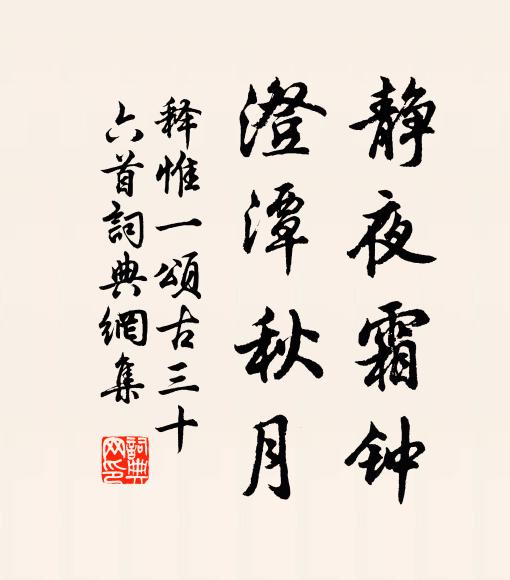 静夜霜钟
澄潭秋月
释惟一頌古三十
六首詞典網集
詞典网印